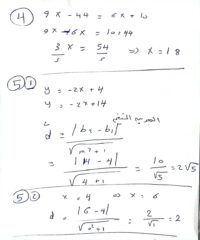 ④ 9x - 44 = 6x + 10
9x - 6x = 10 + 44
3x/3 = 54/3 ⇒ x = 18
⑤① y = -2x + 4
y = -2x + 14
d = |b₂ - b₁| / √m² + 1
= |14 - 4| / √4 + 1 = 10/√5 = 2√5
⑤② x = 4 x = 6
d = |6 - 4| / √0² + 1 = 2/√1 = 2